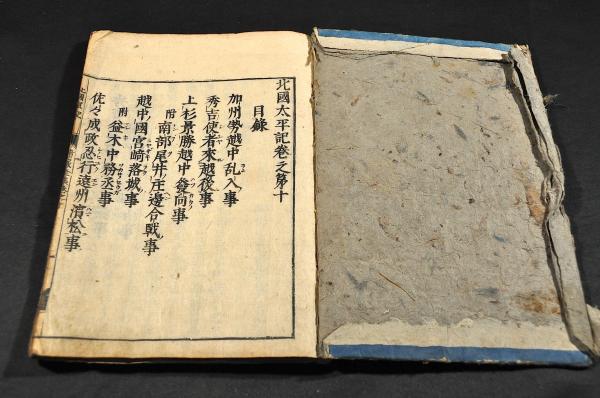 北國太平記巻之第十
目録
加州勢越中乱入事
秀吉使者來越後事
上杉景勝越中發向事
附南部尾井庄邊合戰事
越中國宮崎落城事
附益木中務丞事
佐々成政忍行遠州濱松事